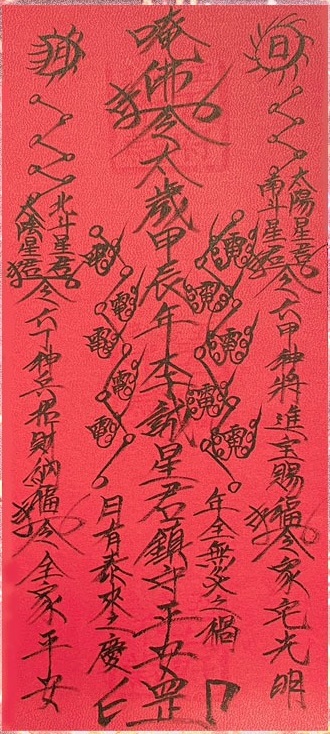 日
太陽星君
南斗星君
令六甲神將進宝賜福令家宅光明
年主無災之禍
唵佛令太歲甲辰年李誠星君鎮守平安罡
雷
月有泰來之慶
月
北斗星君
太陰星君
令六丁神兵招財納福令全家平安